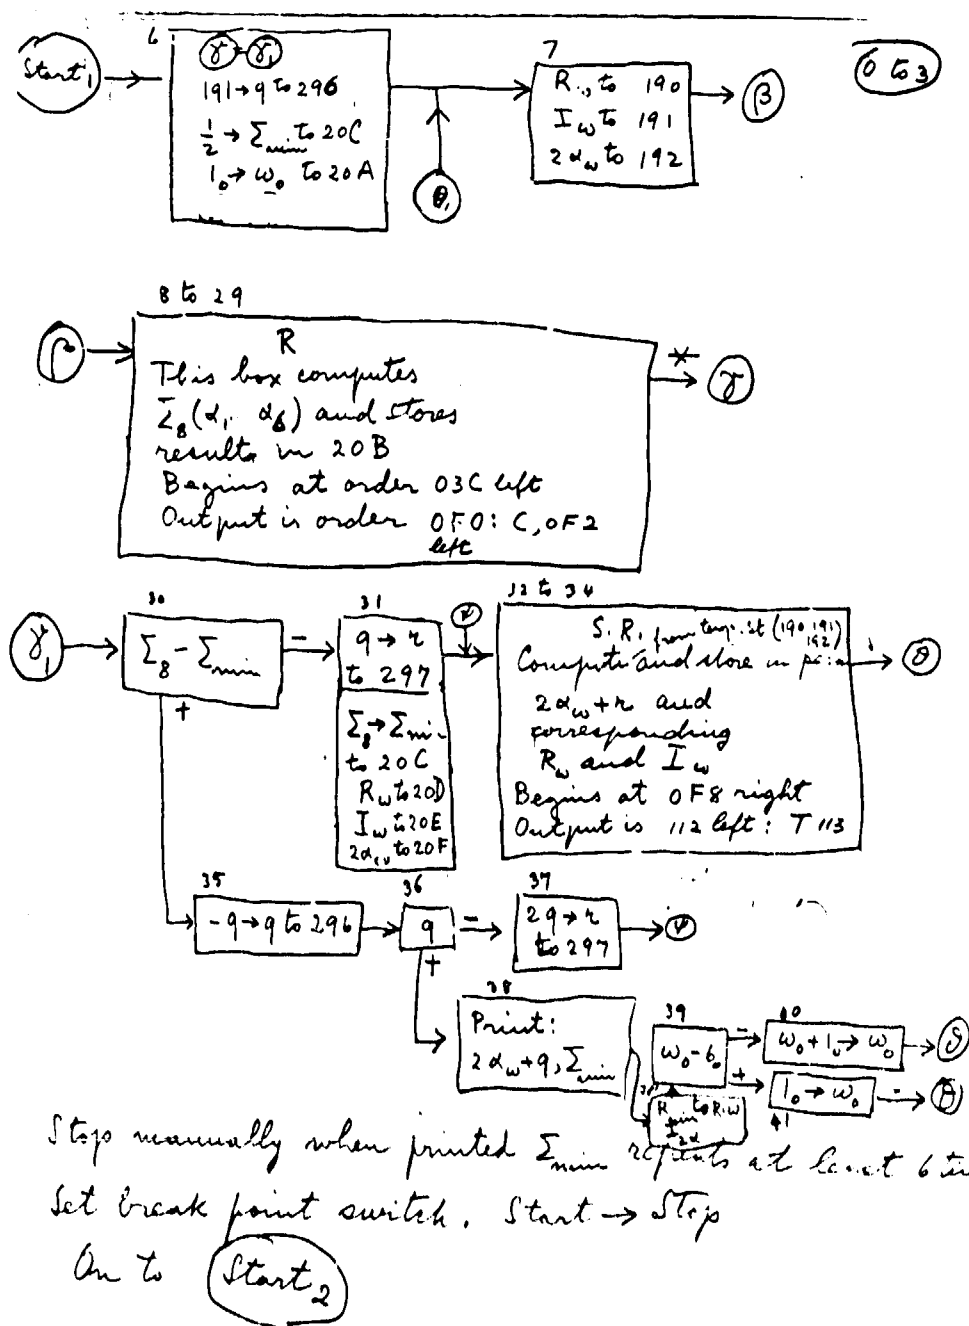 Start₁
6
γ = γ₁
191 → q to 296
½ → Σmin to 20C
1₀ → ω₀ to 20A
θ₁
7
to 190
I_ω to 191
2α_ω to 192
β
0 to 3
8 to 29
R
This box computes
Σ₈(α₁ α₆) and stores
results in 20B
Begins at order 03C left
Output is order 0F0: C, 0F2
left
γ
γ₁
30
Σ₈ - Σmin
-
+
31
q → r
to 297
Σ₈ → Σmin
to 20C
R_ω to 20D
I_ω to 20E
2α_ω to 20F
ψ
32 to 34
S.R. from (190 191
192)
Compute and store in
2α_ω + r and
corresponding
R_ω and I_ω
Begins at 0F8 right
Output is 112 left: T 113
35
-q → q to 296
36
q
-
+
37
2q → r
to 297
ψ
38
Print:
2α_ω + q, Σmin
39
ω₀ - 6₀
-
+
40
ω₀ + 1₀ → ω₀
41
1₀ → ω₀
Stop manually when printed Σmin repeats at least 6
Set break point switch. Start → Stop
On to Start₂